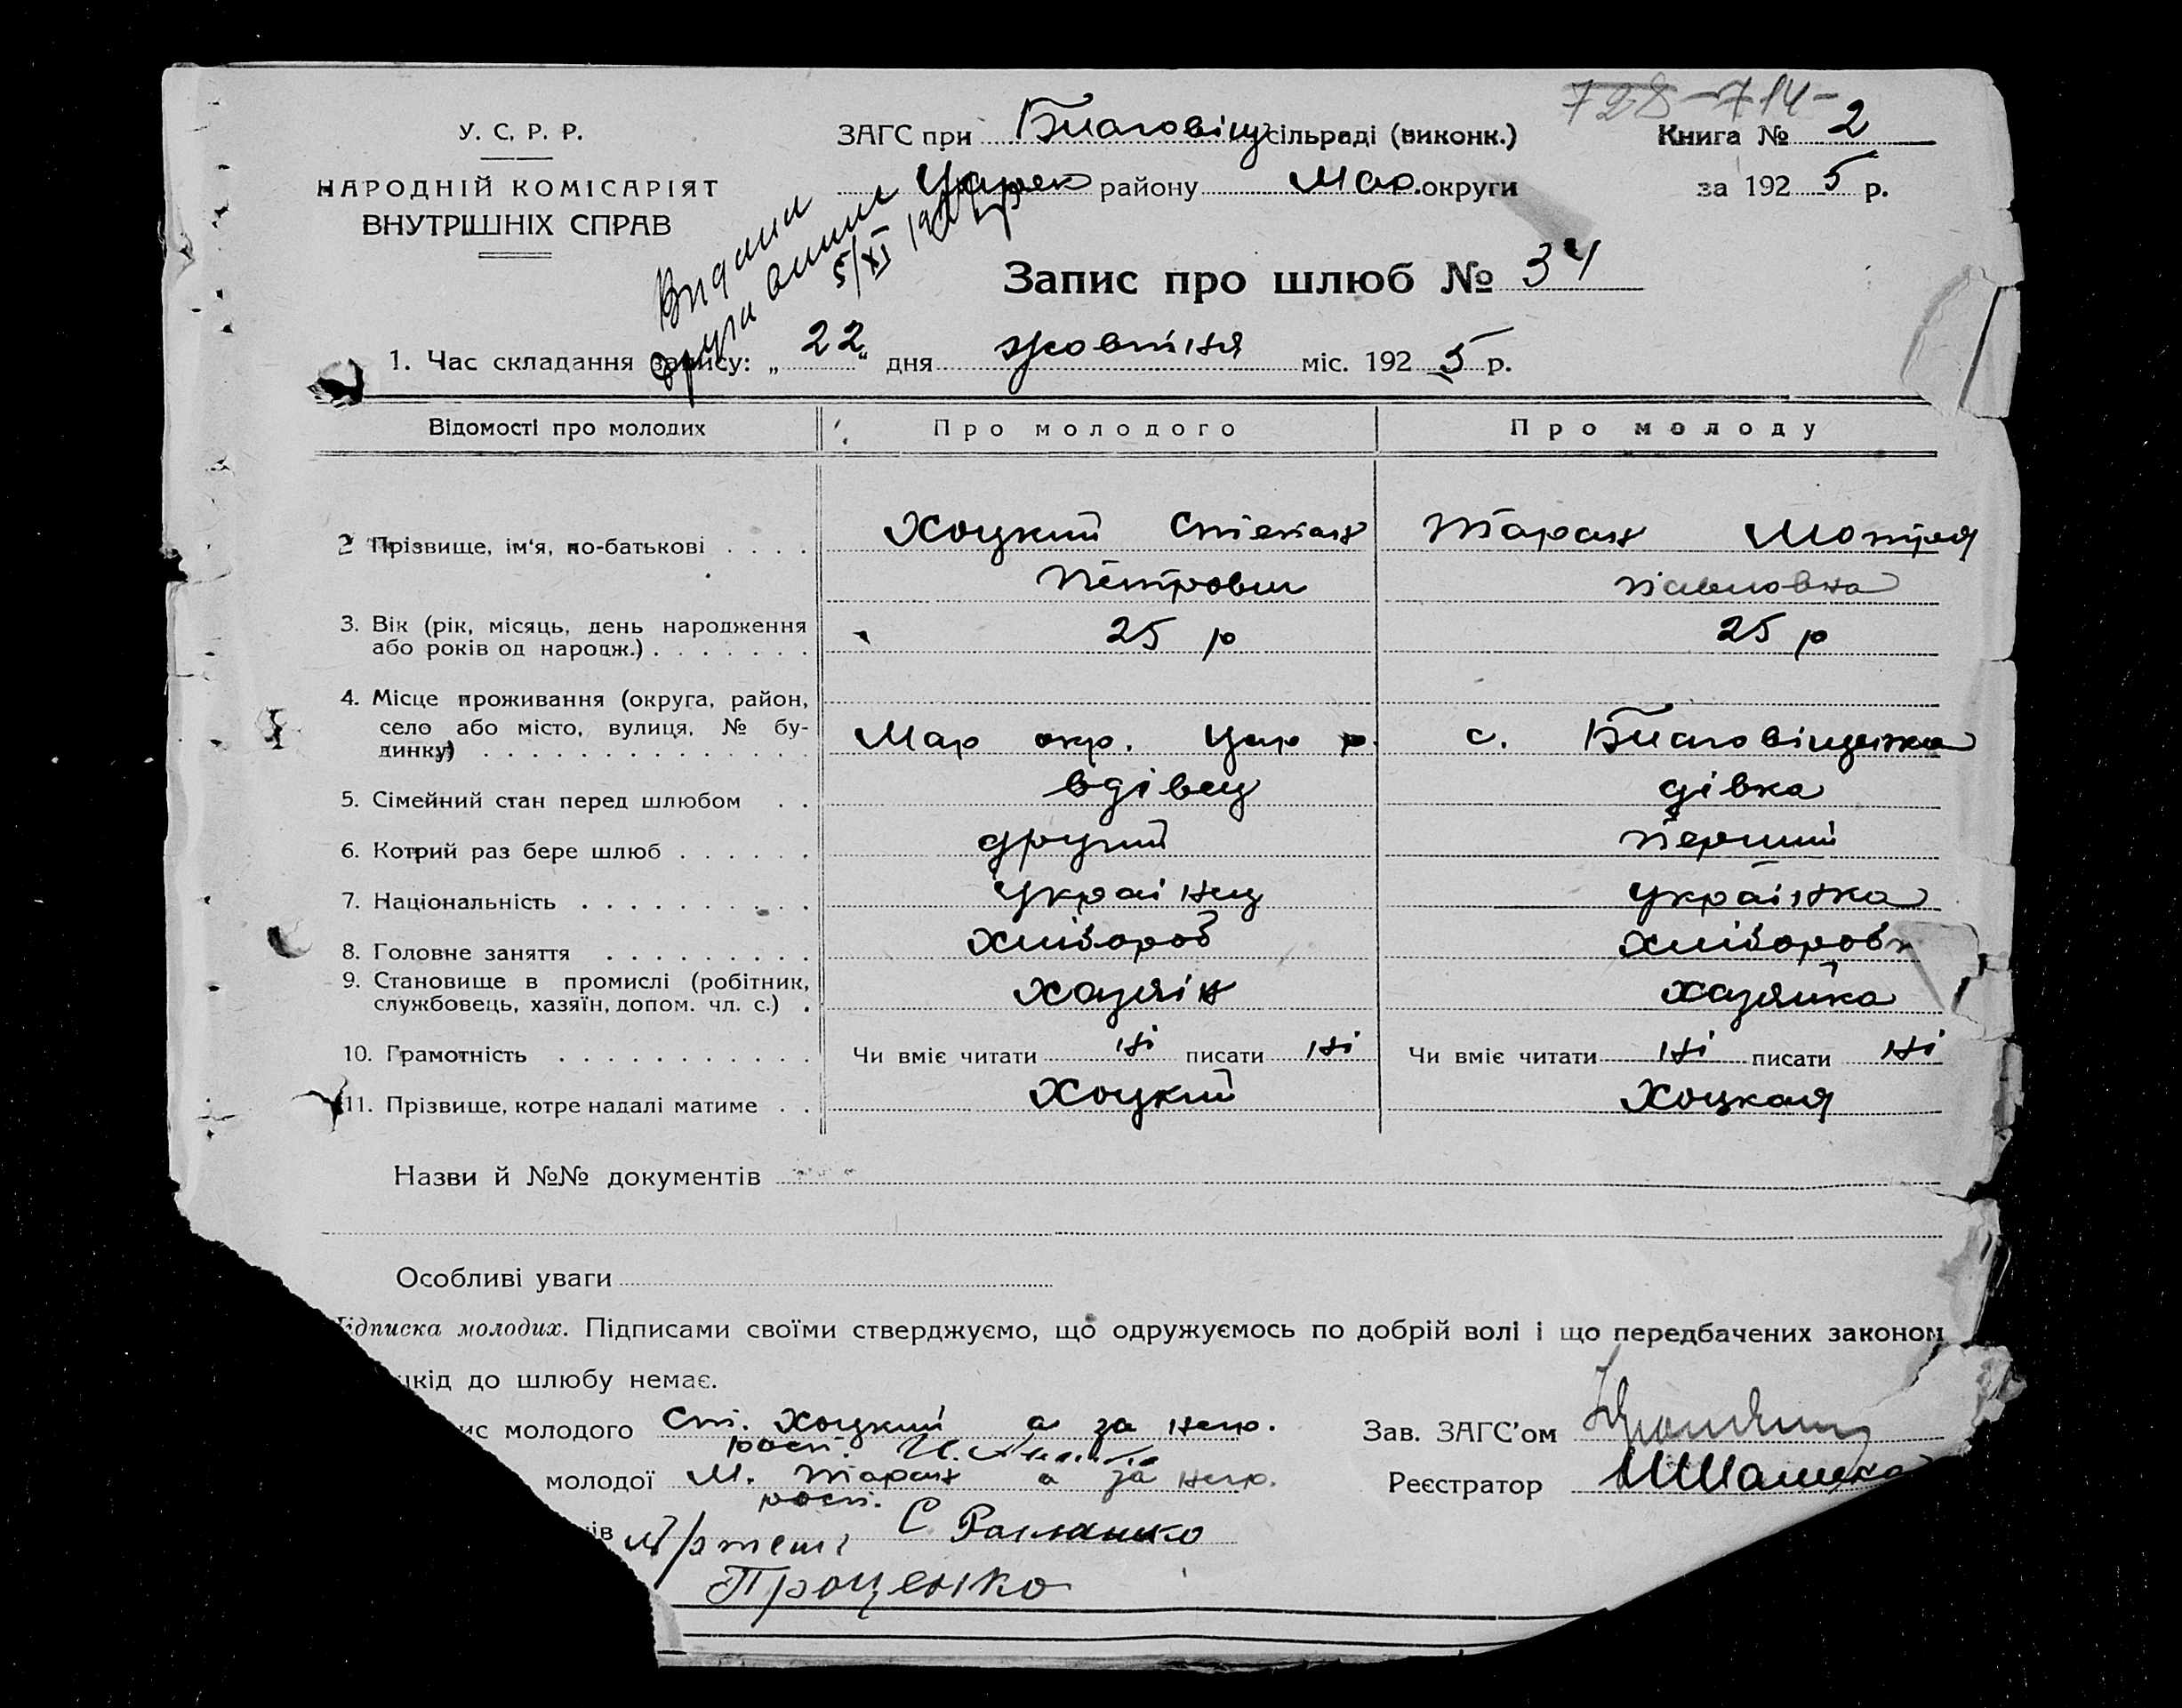 728-714-
У. С. Р. Р.
ЗАГС при Благовіщ сільраді (виконк.) Книга № 2
НАРОДНІЙ КОМІСАРІЯТ
ВНУТРІШНІХ СПРАВ
Царек району Мар. округи за 1925 р.
Видани
други
5/XI
Запис про шлюб № 34
1. Час складання запису: „22“ дня жовтня міс. 1925 р.
Відомості про молодих Про молодого Про молоду
2 Прізвище, ім'я, по-батькові . . . . Хоцкий Степан Таран Мотря
Петрови Павловна
3. Вік (рік, місяць, день народження 25 р 25 р
або років од народж.) . . . . . . .
4. Місце проживання (округа, район,
село або місто, вулиця, № бу- Мар окр. Цар р. с. Благовіщенка
динку) . . . . . . . . . . . . . .
5. Сімейний стан перед шлюбом . . вдівец дівка
6. Котрий раз бере шлюб . . . . . . другий перший
7. Національність . . . . . . . . . . українец українка
8. Головне заняття . . . . . . . . . хлібороб хлібороб
9. Становище в промислі (робітник, хазяін хазяйка
службовець, хазяїн, допом. чл. с.) .
10. Грамотність . . . . . . . . . . . Чи вміє читати ні писати ні Чи вміє читати ні писати ні
11. Прізвище, котре надалі матиме . . Хоцкий Хоцкая
Назви й №№ документів
Особливі уваги
ідписка молодих. Підписами своїми стверджуємо, що одружуємось по добрій волі і що передбачених законом
шкід до шлюбу немає.
ис молодого Ст. Хоцкий а за негр. Зав. ЗАГС'ом
росп.
молодої М. Таран а за негр. Реєстратор
росп.
ів С
Проценко